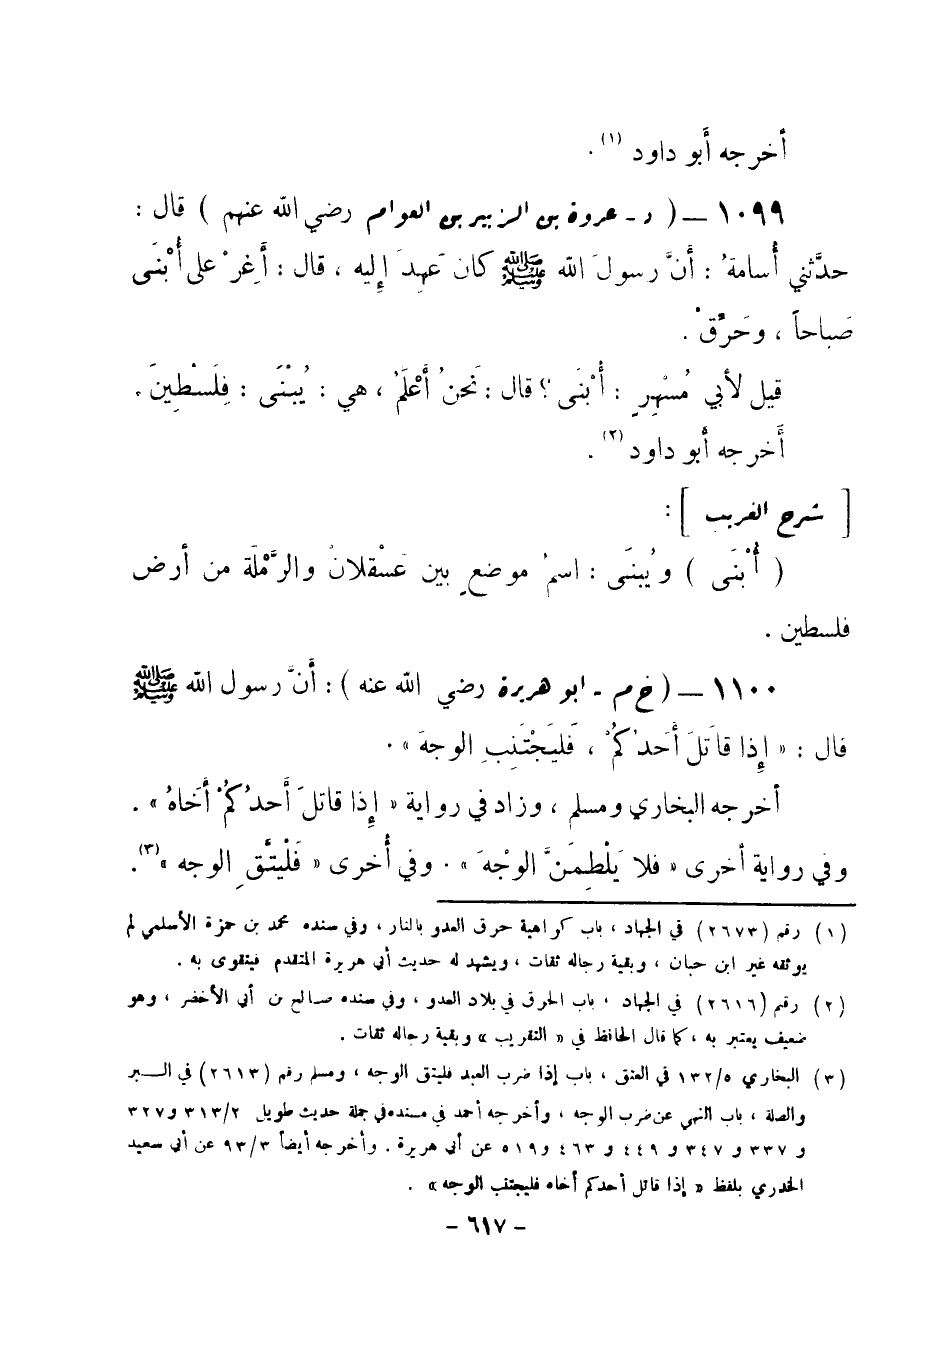 أخرجه أَبو داود (١) .
١٠٩٩ – ( د - عروة بن الزبير بن العوام رضي الله عنهم ) قال :
حدَّثني أُسامةُ : أنَّ رسولَ الله ﷺ كان عَهِدَ إِليه ، قال : أَغِرْ على أُبْنَى
صَباحاً ، وحَرِّقْ .
قيل لأبي مُسْهِرٍ : أُبْنَى ؟ قال : نَحنُ أَعْلَمُ ، هي : يُبْنَى : فِلَسْطِينَ .
أَخرجه أبو داود (٢) .
[ شرح الغريب ] :
( أُبْنَى ) و يُبنَى : اسمُ موضعٍ بين عَسْقلانَ والرَّمْلَة من أرض
فلسطين .
١١٠٠ – ( خ م - ابو هريرة رضي الله عنه ) : أَنَّ رسول الله ﷺ
قال : « إِذا قاَتلَ أَحَدُكُمْ ، فَليَجْتَنِبِ الوجهَ » .
أخرجه البخاري ومسلم ، وزاد في رواية « إِذا قاتلَ أَحدُكُمْ أَخاهُ » .
وفي رواية أخرى « فلا يَلْطِمَنَّ الوجْهَ » . وفي أُخرى « فَلْيتَّقِ الوجه » (٣) .
(١) رقم (٢٦٧٣) في الجهاد ، باب كراهية حرق العدو بالنار ، وفي سنده محمد بن حمزة الأسلمي لم
يوثقه غير ابن حبان ، وبقية رجاله ثقات ، ويشهد له حديث أبي هريرة المتقدم فيتقوى به .
(٢) رقم (٢٦١٦) في الجهاد ، باب الحرق في بلاد العدو ، وفي سنده صالح بن أبي الأخضر ، وهو
ضعيف يعتبر به ، كما قال الحافظ في « التقريب » وبقية رجاله ثقات .
(٣) البخاري ١٣٢/٥ في العتق ، باب إذا ضرب العبد فليتق الوجه ، ومسلم رقم (٢٦١٣) في البر
والصلة ، باب النهي عن ضرب الوجه ، وأخرجه أحمد في مسنده في جملة حديث طويل ٣١٣/٢ و٣٢٧
و ٣٣٧ و ٣٤٧ و ٤٤٩ و ٤٦٣ و٥١٩ عن أبي هريرة . وأخرجه أيضاً ٩٣/٣ عن أبي سعيد
الخدري بلفظ « إذا قاتل أحدكم أخاه فليجتنب الوجه » .
- ٦١٧ -